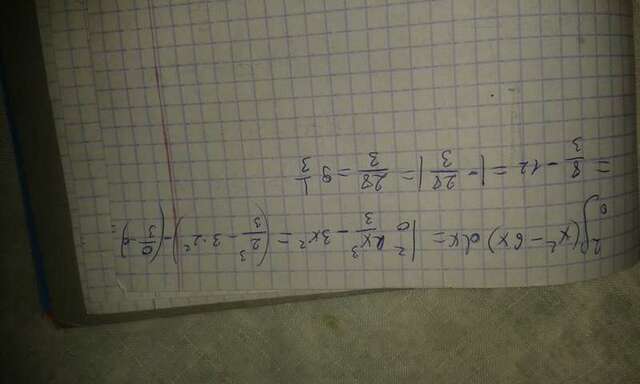 ∫₀² (x² - 6x) dx = |₀² x³/3 - 3x² = (2³/3 - 3·2²) - (0/3 - 0) =
= 8/3 - 12 = |- 28/3| = 28/3 = 9 1/3